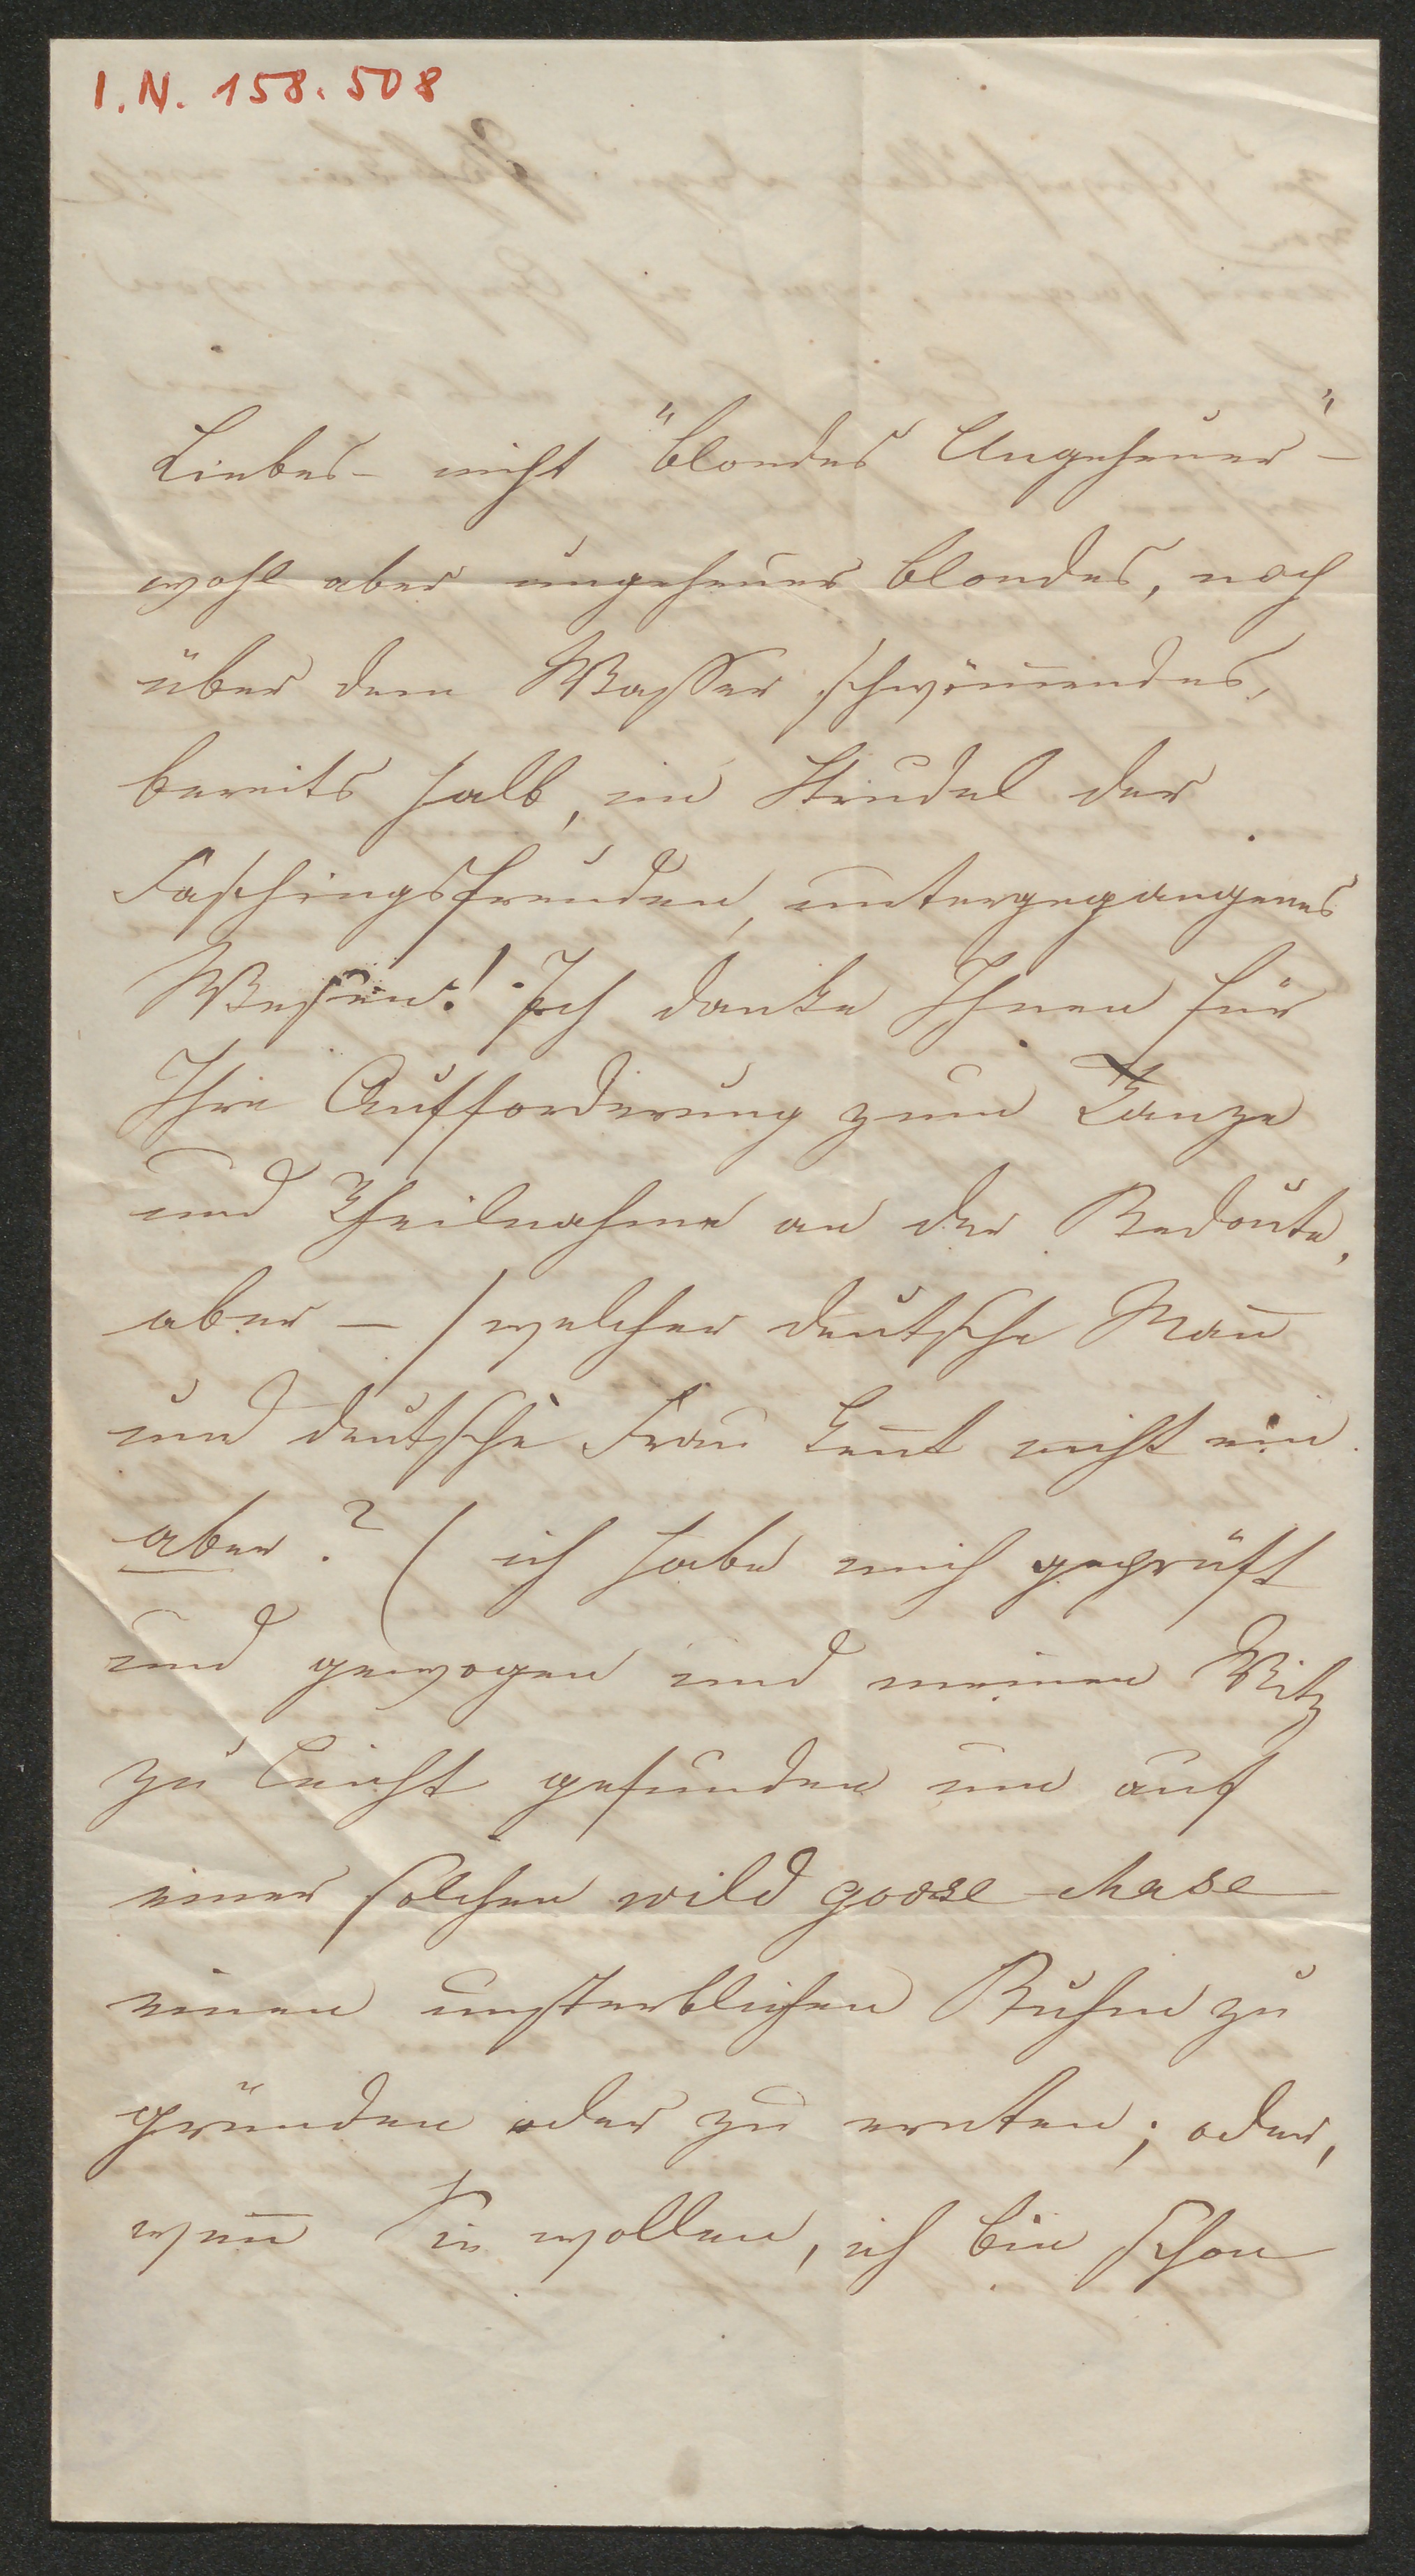 I. N. 158.508
Liebes - nicht "blondes Ungeheuer" -
wohl aber ungeheuer blondes, noch
über dem Wasser schwim̄endes,
bereits halb, im Strudel der
Faschingsfreuden, untergegangenes
Wesen! Ich danke Ihnen für
Ihre Aufforderung zum Tanze
und Theilnahme an der Redoute,
aber - / welcher deutsche Man̄
und deutsche Frau ken̄t nicht ein
aber? / ich habe mich geprüft
und gewogen und meinen Witz
zu leicht gefunden um auf
einer solchen wild goose chase
einen unsterblichen Ruhm zu
gründen oder zu ernten; oder,
wen̄ Sie wollen, ich bin schon